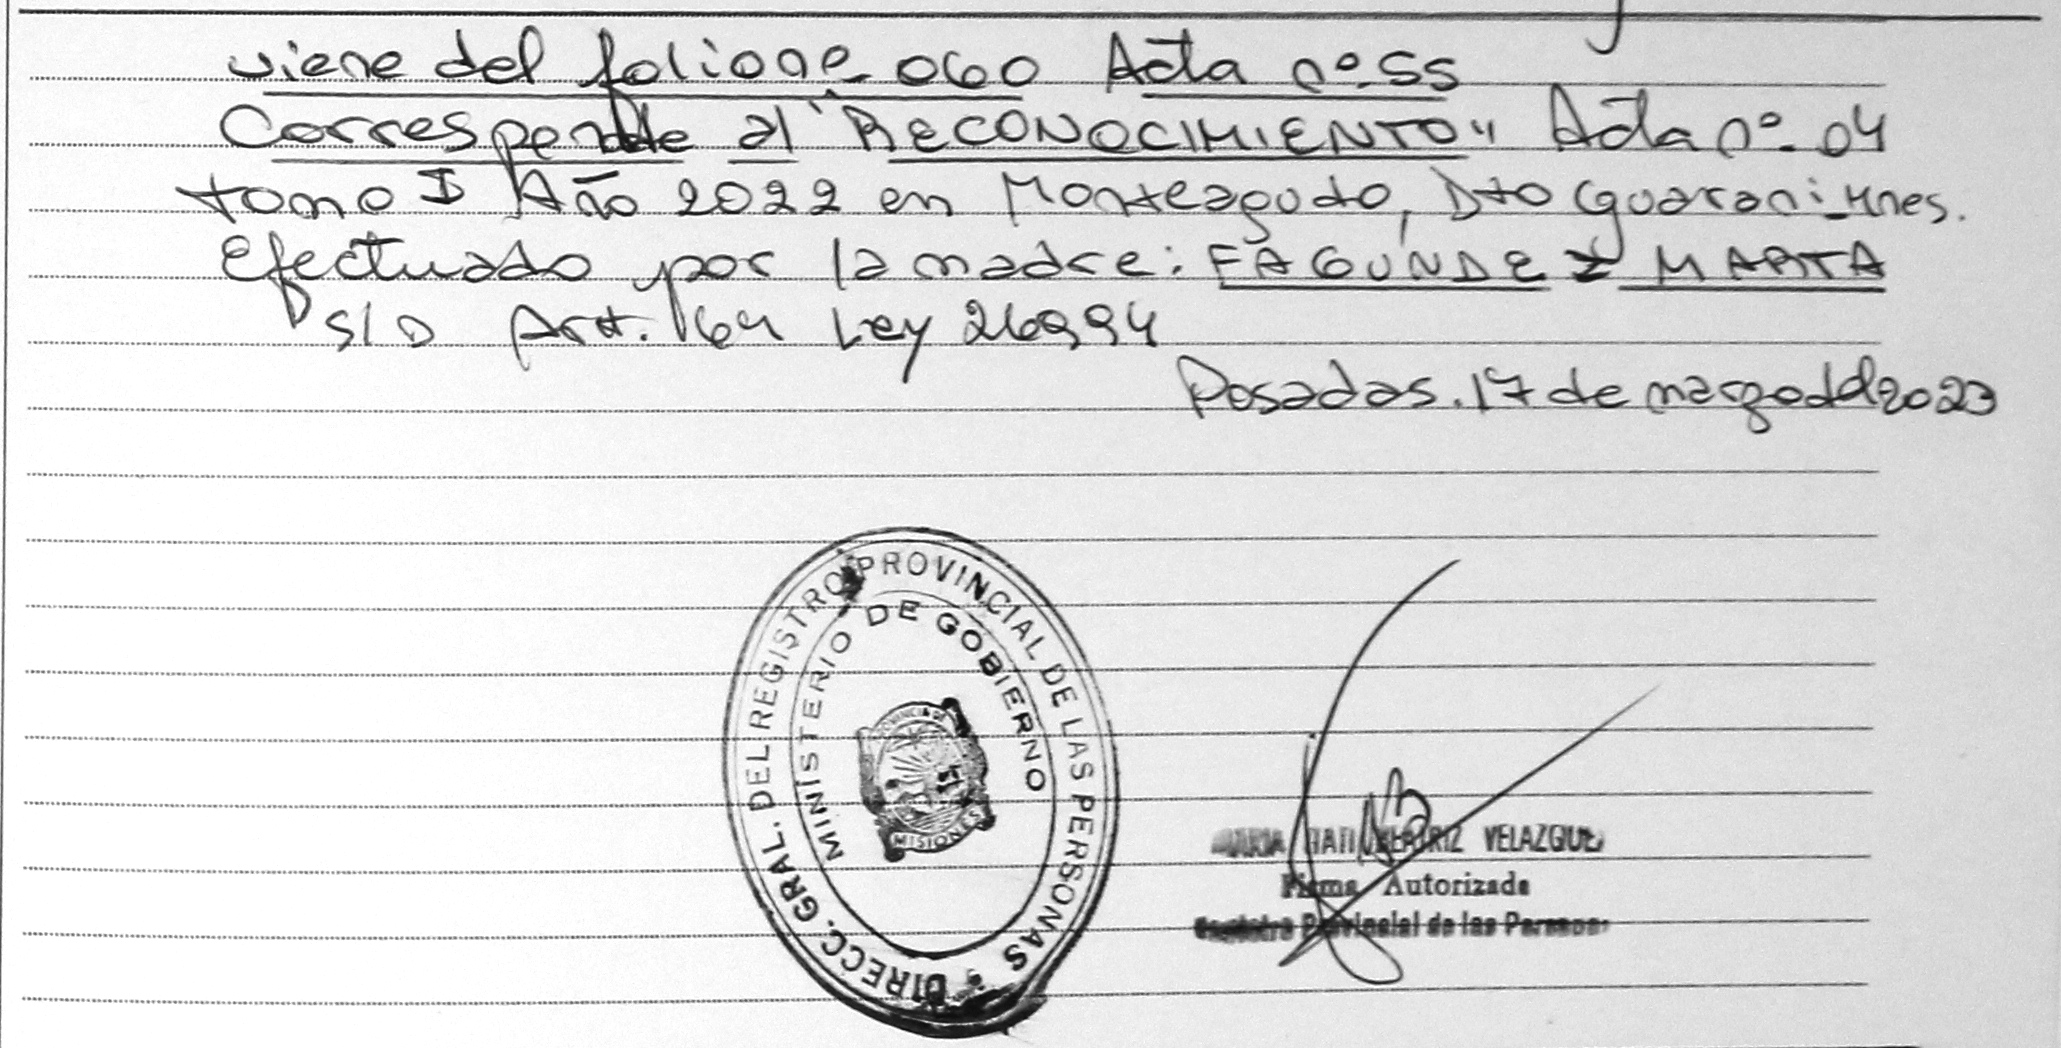 viene del folio nº 060 Acta nº 55
Corresponde al "RECONOCIMIENTO" Acta nº 04
tomo I Año 2022 en Monteagudo, Dto Guarani-Mnes.
Efectuado por la madre: FAGUNDEZ MARTA
S/D Art. 64 Ley 26994
Posadas. 17 de marzo del 2023
DIRECC. GRAL. DEL REGISTRO PROVINCIAL DE LAS PERSONAS
MINISTERIO DE GOBIERNO
PROVINCIA DE
MISIONES
BEATRIZ VELAZQUEZ
Firma Autorizada
Registro Provincial de las Personas